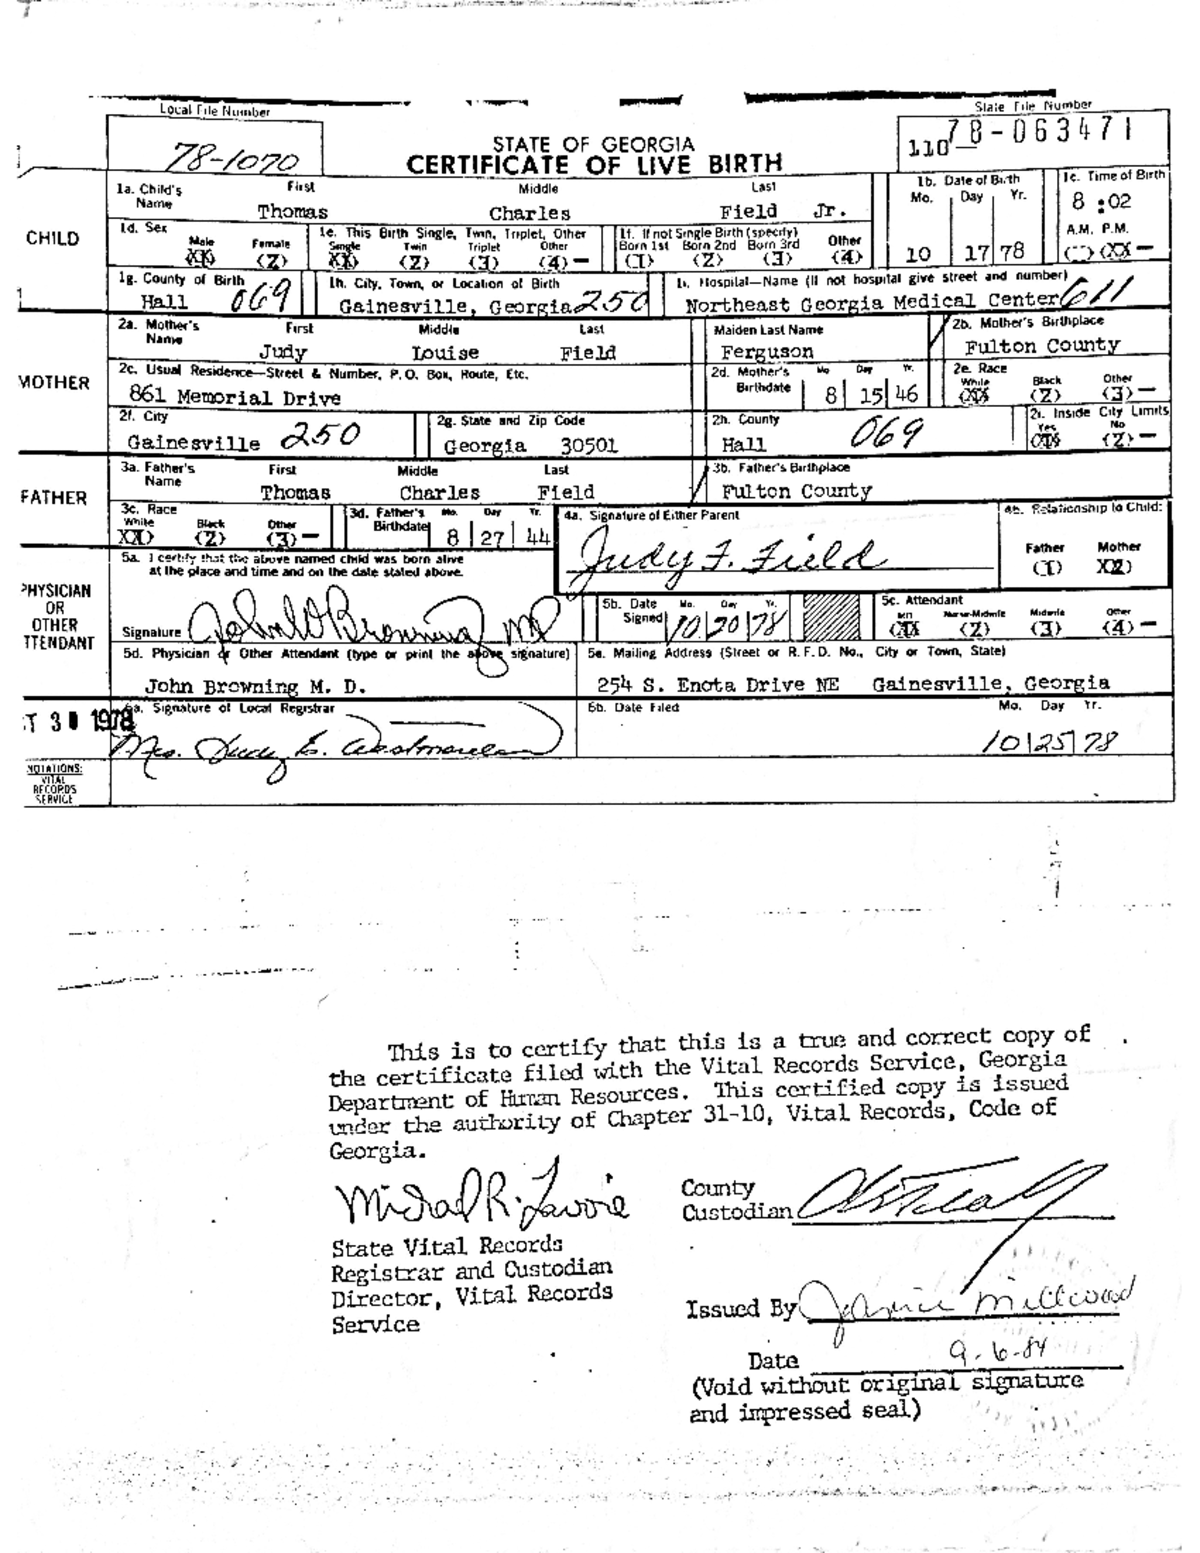 Local File Number
State File Number
78-1070
STATE OF GEORGIA
CERTIFICATE OF LIVE BIRTH
110 78-063471
CHILD
1a. Child's Name First Middle Last
Thomas Charles Field Jr.
1b. Date of Birth
Mo. Day Yr.
10 17 78
1c. Time of Birth
8 :02
A.M. P.M.
( ) (XX
1d. Sex
Male Female
XX (2)
1e. This Birth Single, Twin, Triplet, Other
Single Twin Triplet Other
XX (2) (3) (4) —
1f. If not Single Birth (specify)
Born 1st Born 2nd Born 3rd Other
(1) (2) (3) (4)
1g. County of Birth
Hall 069
1h. City, Town, or Location of Birth
Gainesville, Georgia 250
1i. Hospital—Name (If not hospital give street and number)
Northeast Georgia Medical Center 611
MOTHER
2a. Mother's Name First Middle Last
Judy Louise Field
Maiden Last Name
Ferguson
2b. Mother's Birthplace
Fulton County
2c. Usual Residence—Street & Number, P.O. Box, Route, Etc.
861 Memorial Drive
2d. Mother's Birthdate Mo Day Yr.
8 15 46
2e. Race
White Black Other
(XX (2) (3) —
2f. City
Gainesville 250
2g. State and Zip Code
Georgia 30501
2h. County
Hall 069
2i. Inside City Limits
Yes No
(XX (2) —
FATHER
3a. Father's Name First Middle Last
Thomas Charles Field
3b. Father's Birthplace
Fulton County
3c. Race
White Black Other
XX) (2) (3) —
3d. Father's Birthdate Mo. Day Yr.
8 27 44
4a. Signature of Either Parent
Judy F. Field
4b. Relationship to Child:
Father Mother
(1) XX)
PHYSICIAN
OR
OTHER
TTENDANT
5a. I certify that the above named child was born alive
at the place and time and on the date stated above.
Signature John W Browning MD
5b. Date Signed Mo. Day Yr.
10 20 78
5c. Attendant
MD Nurse-Midwife Midwife Other
(XX (2) (3) (4) —
5d. Physician or Other Attendant (type or print the above signature)
John Browning M. D.
5e. Mailing Address (Street or R.F.D. No., City or Town, State)
254 S. Enota Drive NE Gainesville, Georgia
T 30 1978
6a. Signature of Local Registrar
Mrs. Judy
6b. Date Filed Mo. Day Yr.
10 25 78
NOTATIONS:
VITAL
RECORDS
SERVICE
This is to certify that this is a true and correct copy of
the certificate filed with the Vital Records Service, Georgia
Department of Human Resources. This certified copy is issued
under the authority of Chapter 31-10, Vital Records, Code of
Georgia.
Michael R. Lavoie
State Vital Records
Registrar and Custodian
Director, Vital Records
Service
County
Custodian
Issued By Janice Millwood
Date 9-6-84
(Void without original signature
and impressed seal)